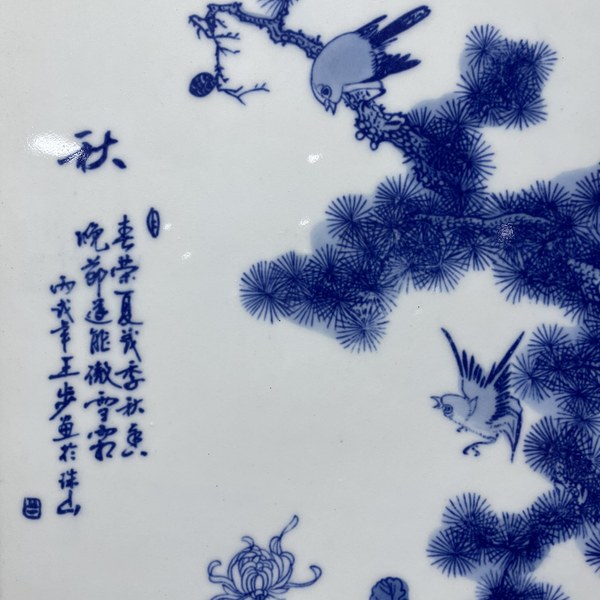 秋
春荣夏茂季秋香
晚节还能傲雪霜
丙戌年王步画於珠山